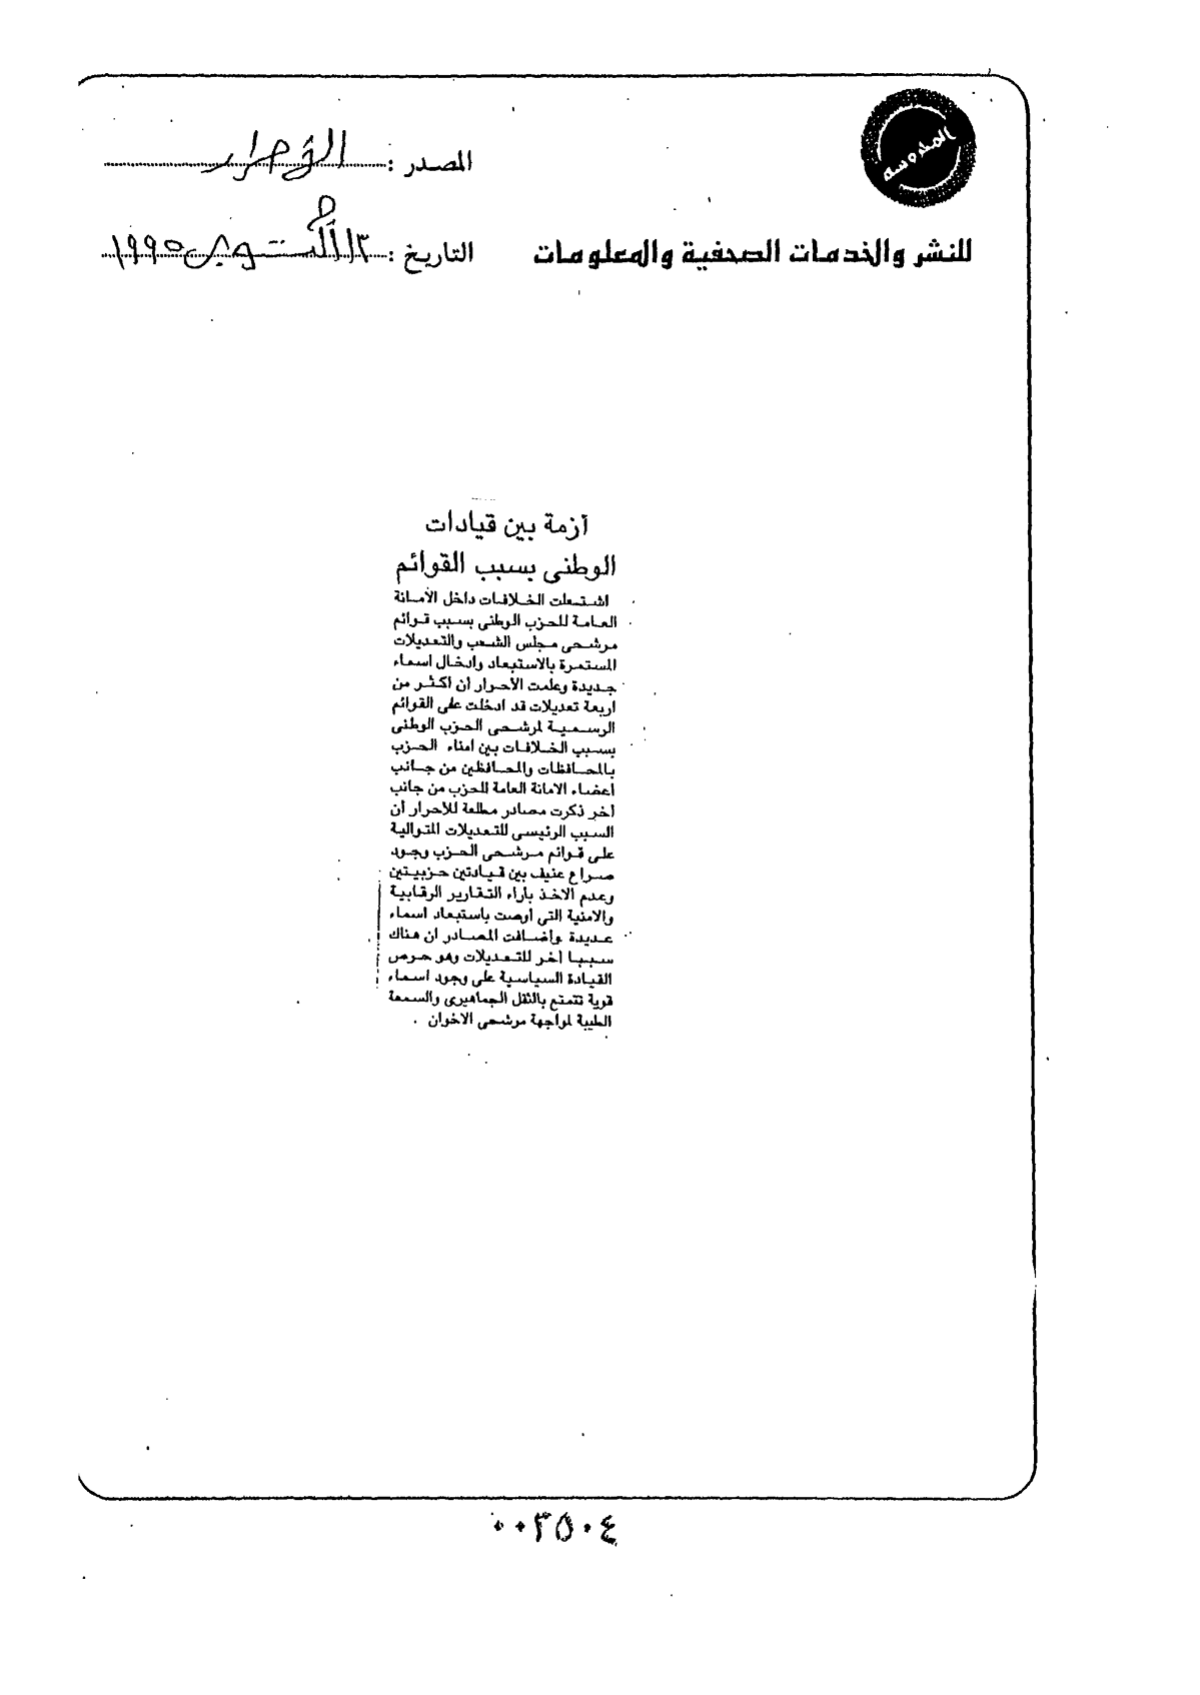 المحروسة
المصدر : الأحرار
للنشر والخدمات الصحفية والمعلومات
التاريخ : ١٣ أكتوبر ١٩٩٥
أزمة بين قيادات
الوطنى بسبب القوائم
اشتعلت الخلافات داخل الأمانة
العامة للحزب الوطنى بسبب قوائم
مرشحى مجلس الشعب والتعديلات
المستمرة بالاستبعاد وادخال اسماء
جديدة وعلمت الأحرار أن اكثر من
اربعة تعديلات قد ادخلت على القوائم
الرسمية لمرشحى الحزب الوطنى
بسبب الخلافات بين امناء الحزب
بالمحافظات والمحافظين من جانب
اعضاء الامانة العامة للحزب من جانب
آخر ذكرت مصادر مطلعة للأحرار أن
السبب الرئيسى للتعديلات المتوالية
على قوائم مرشحى الحزب وجود
صراع عنيف بين قيادتين حزبيتين
وعدم الاخذ بآراء التقارير الرقابية
والامنية التى أوصت باستبعاد اسماء
عديدة وأضافت المصادر ان هناك
سببا آخر للتعديلات وهو حرص
القيادة السياسية على وجود اسماء
قوية تتمتع بالثقل الجماهيرى والسمعة
الطيبة لمواجهة مرشحى الاخوان .
٠٠٣٥٠٤